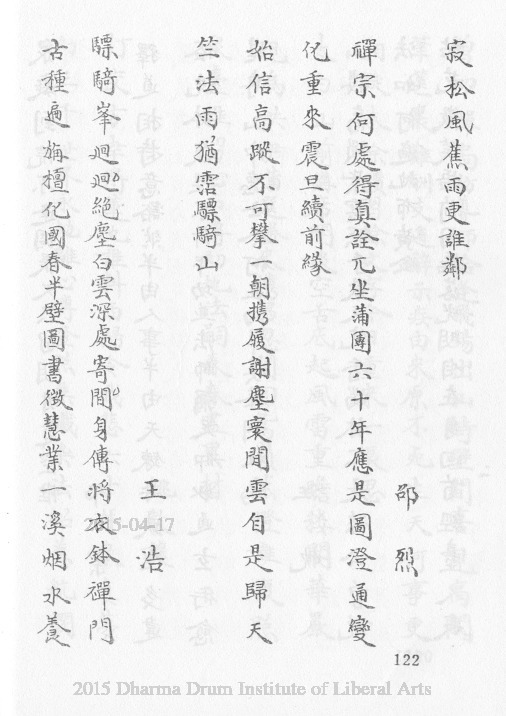 寂松風蕉雨更誰鄰
邵烈
禪宗何處得真詮兀坐蒲團六十年應是圖澄通變
化重來震旦續前緣
始信高蹤不可攀一朝携履謝塵寰閒雲自是歸天
竺法雨猶霑驃騎山
王浩
驃騎峯迴迴絕塵白雲深處寄閒身傳將衣鉢禪門
古種遍旃檀化國春半壁圖書徵慧業溪烟水養
122
2015-04-17
2015 Dharma Drum Institute of Liberal Arts